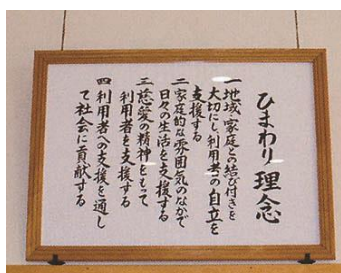 ひまわり 理念
一 地域・家庭との結び付きを
大切にし、利用者の自立を
支援する
二 家庭的な雰囲気のなかで
日々の生活を支援する
三 慈愛の精神をもって
利用者を支援する
四 利用者への支援を通し
て社会に貢献する